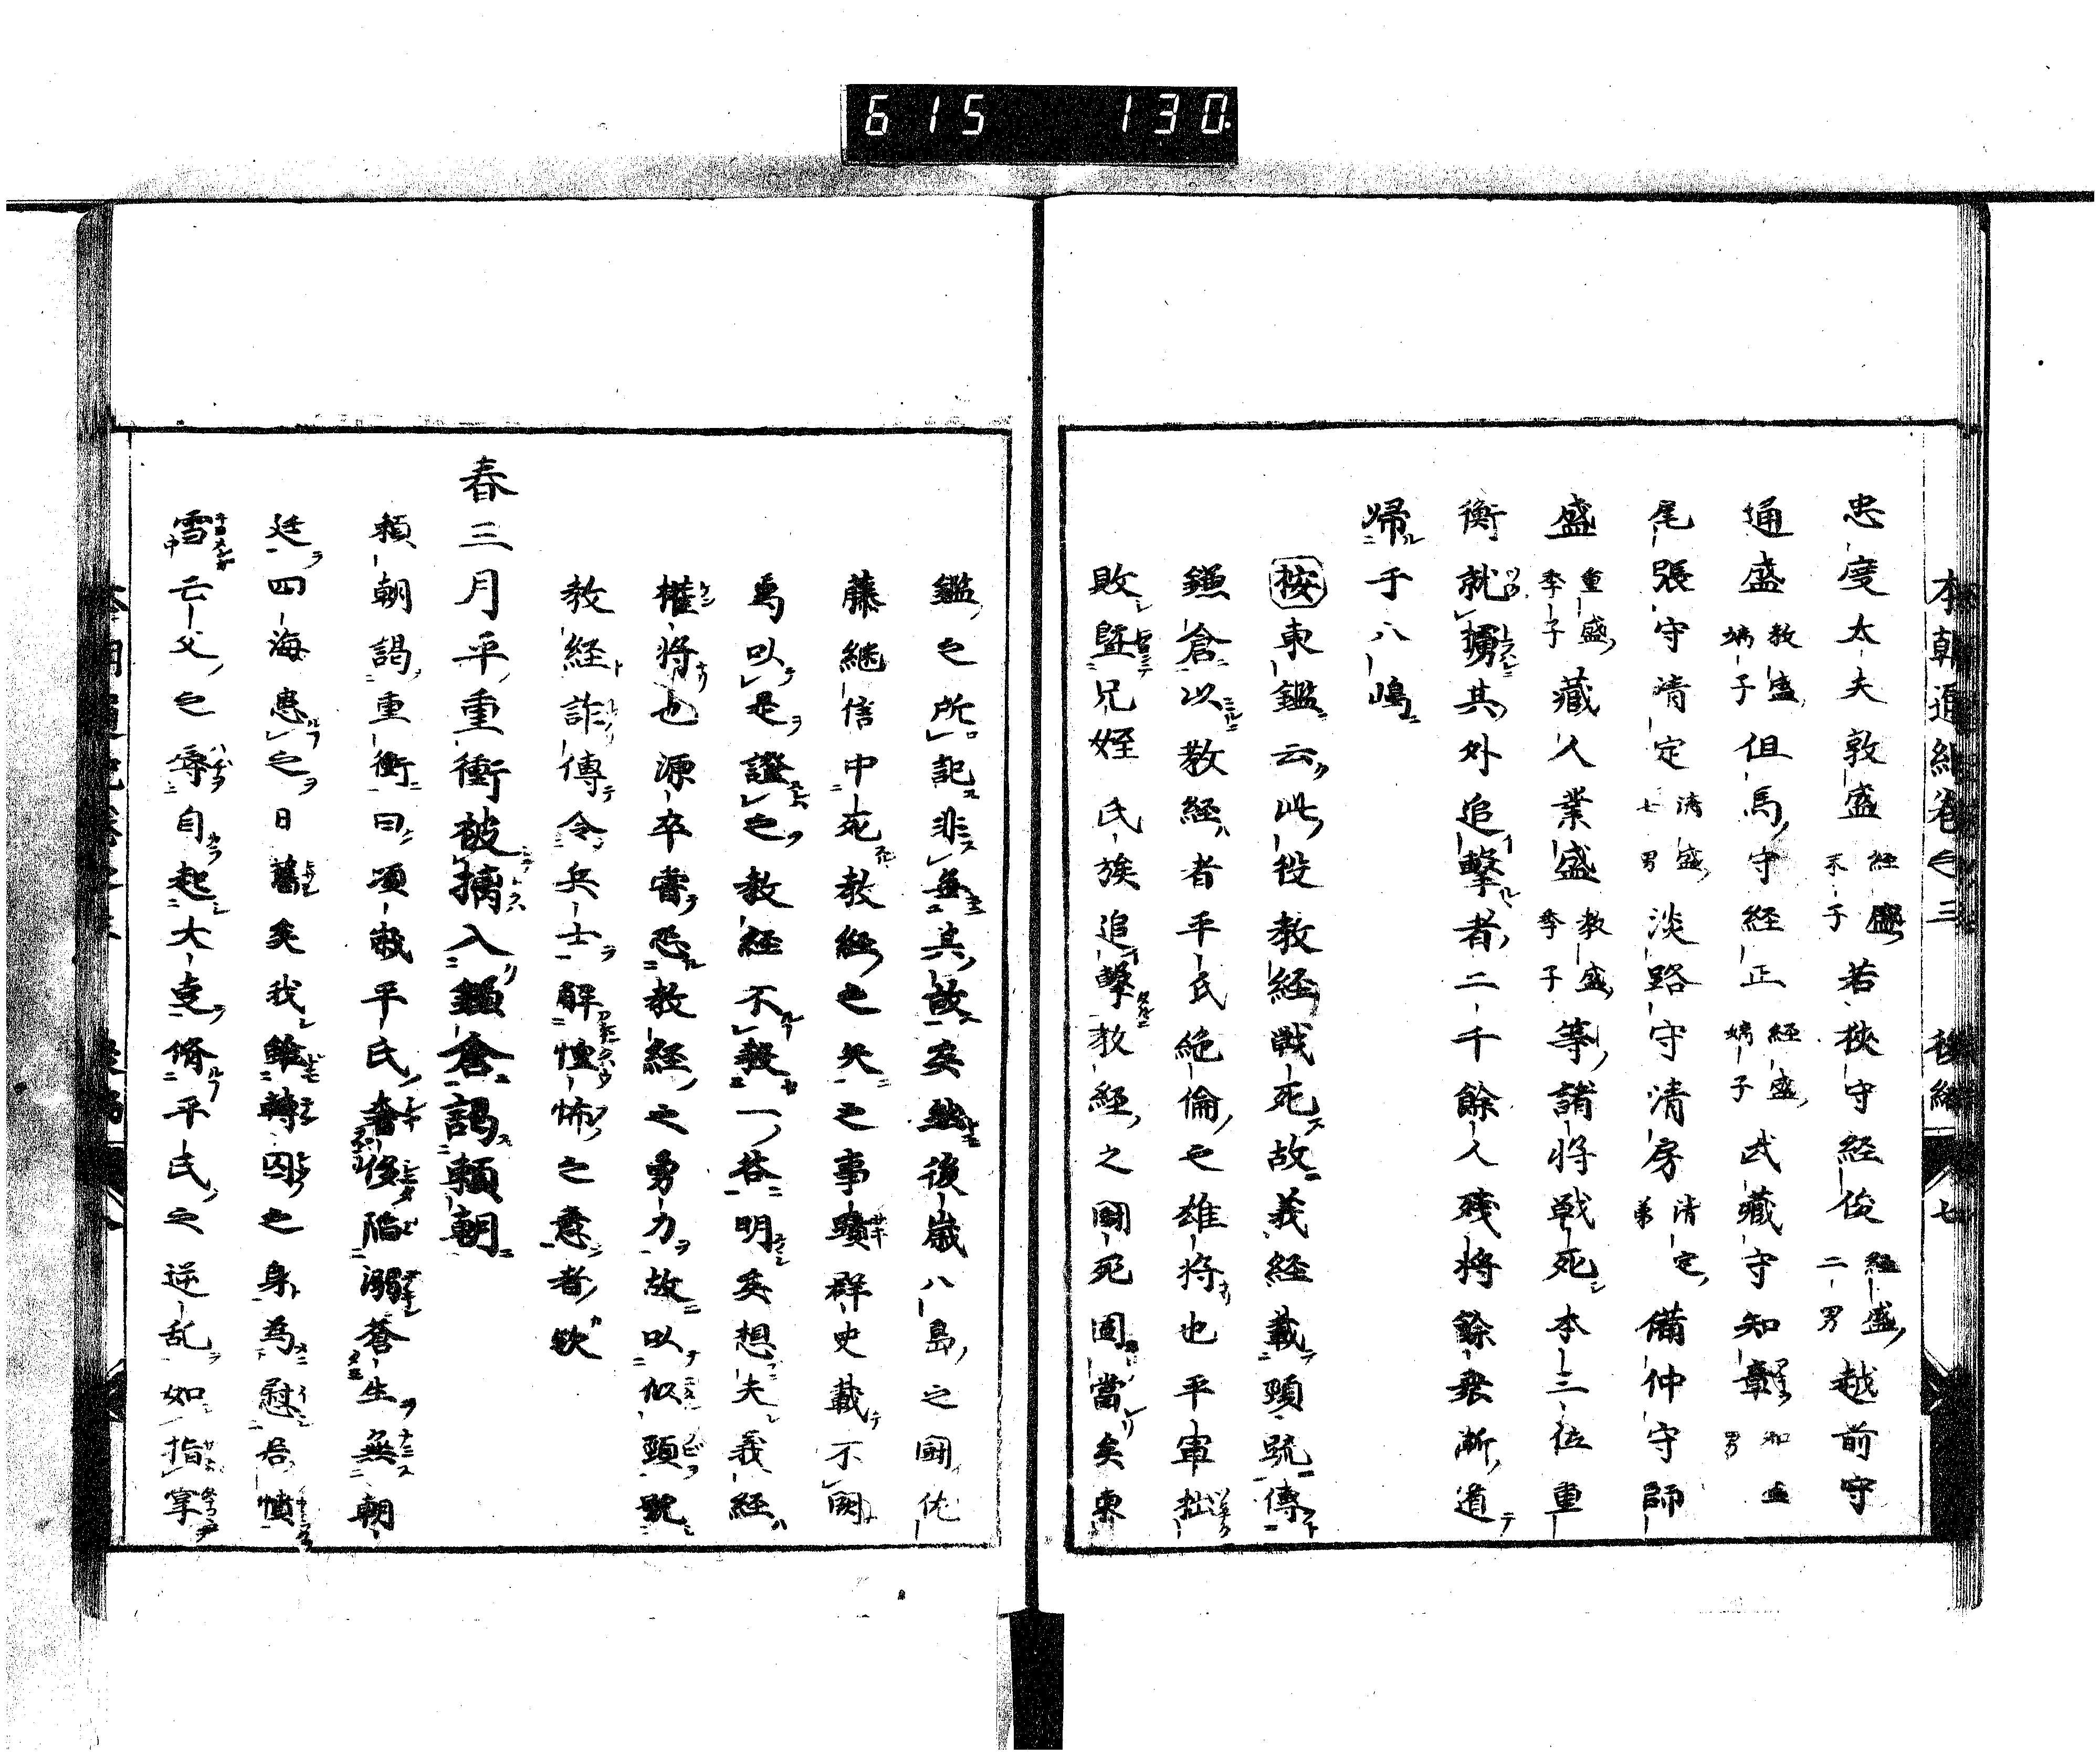 615 130
本朝通紀卷之三 後編 七
忠度太夫敦盛 経盛末子 若狹守経俊 経盛二男 越前守
通盛 教盛嫡子 但馬守経正 経盛嫡子 武藏守知章 知盛男
尾張守清定 清盛七男 淡路守清房 清定弟 備仲守師
盛 重盛季子 藏人業盛 教盛季子 等諸将戦死本三位重
衡就擒其外追擊者二千餘人残将餘衆漸道
帰于八嶋
按東鑑云此役教経戦死故義経載頸䟽傳
鎌倉以教経者平氏絶倫之雄将也平軍拙
敗曁兄姪氏族追擊教経之國死固當矣東
鑑之所記非無其故矣然後歳八島之國佐
藤継信中死教経之矢之事蹟群史載不闕
焉以是證之教経不殺一谷明矣想夫義経
權将也源卒嘗恐教経之勇力故以似頸號
教経詐傳令兵士解惶怖之意者欤
春三月平重衡被擒入鎌倉謁頼朝
頼朝謁重衡曰頃歳平氏奢侈陥溺蒼生無朝
廷四海患之日舊矣我雖轉囚之身為慰君憤
雪亡父之辱自起大㚖脩平氏之逆乱如指掌